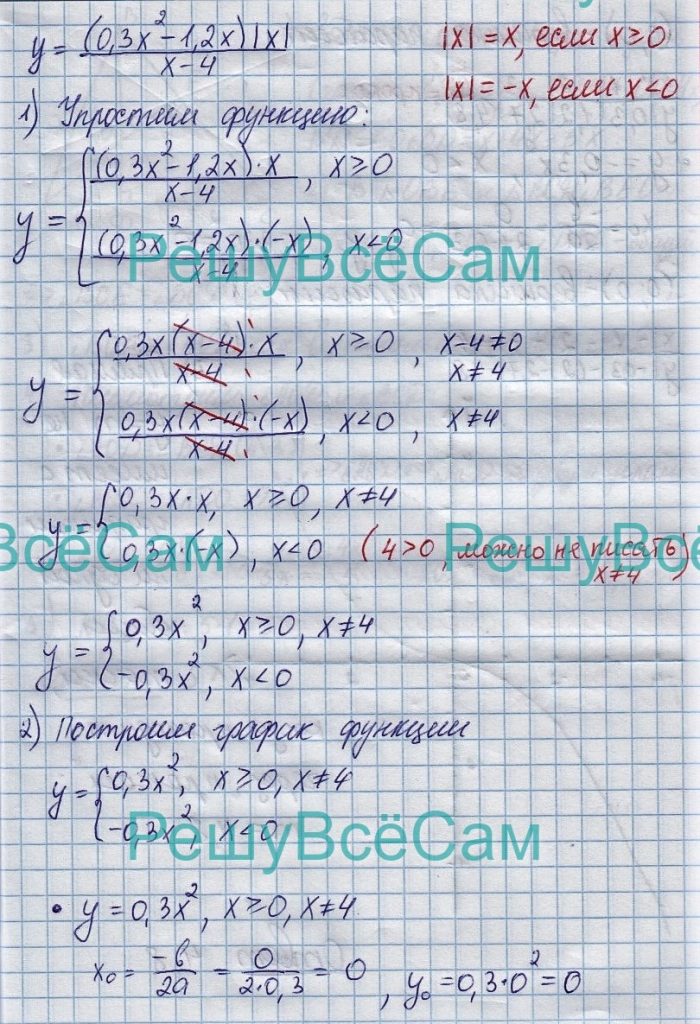 y = (0,3x² − 1,2x)|x| / x−4
|x| = x, если x ≥ 0
|x| = −x, если x < 0
1) Упростим функцию:
y = { (0,3x² − 1,2x)·x / x−4 , x ≥ 0
(0,3x² − 1,2x)·(−x) / x−4 , x < 0
РешуВсёСам
y = { 0,3x(x−4)·x / x−4 , x ≥ 0 , x−4 ≠ 0
x ≠ 4
0,3x(x−4)·(−x) / x−4 , x < 0 , x ≠ 4
y = { 0,3x·x, x ≥ 0, x ≠ 4
0,3x·(−x), x < 0 (4 > 0, можно не писать)
x ≠ 4
ВсёСам РешуВсё
y = { 0,3x², x ≥ 0, x ≠ 4
−0,3x², x < 0
2) Построим график функции
y = { 0,3x², x ≥ 0, x ≠ 4
−0,3x², x < 0
РешуВсёСам
• y = 0,3x², x ≥ 0, x ≠ 4
x₀ = −b / 2a = 0 / 2·0,3 = 0 , y₀ = 0,3·0² = 0